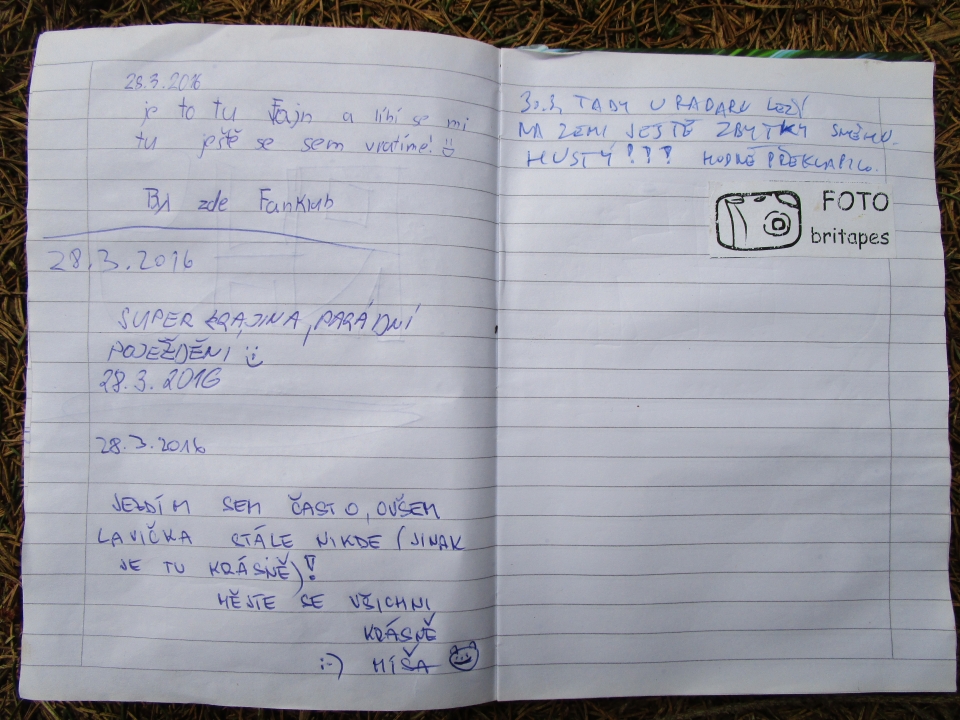 28.3.2016
je to tu Fajn a líbí se mi
tu ještě se sem vratíme!
Byl zde Fanklub
28.3.2016
SUPER KRAJINA, PARÁDNÍ
POJEŽDĚNÍ :)
28.3.2016
28.3.2016
JEZDÍM SEM ČASTO, OVŠEM
LAVIČKA STÁLE NIKDE (JINAK
JE TU KRÁSNĚ)!
MĚJTE SE VŠICHNI
KRÁSNĚ
:-) MÍŠA
TADY U RADARU LEŽÍ
NA ZEMI JEŠTĚ ZBYTKY SNĚHU.
HUSTÝ!?? HODNĚ PŘEKVAPILO.
FOTO
britapes